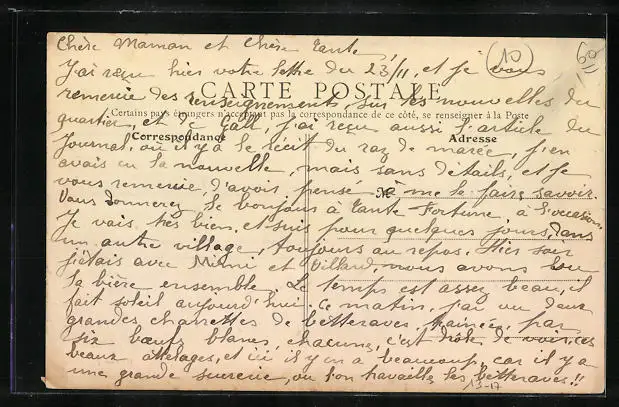 Chère Maman et Chère Tante,
10
60
J'ai reçu hier votre lettre du 23/11, et je vous
CARTE POSTALE
remercie des renseignements, sur les nouvelles du
Certains pays étrangers n'acceptant pas la correspondance de ce côté, se renseigner à la Poste
quartier, et de j'ai reçu aussi l'article du
Correspondance
Adresse
Journal, où il y a le récit du raz de marée, j'en
avais eu la nouvelle, mais sans détails, et je
vous remercie, d'avoir pensé à me le faire savoir.
M
Vous donnerez le bonjour à Tante Fortune, à l'occasion.
Je vais très bien, et suis pour quelques jours, dans
un autre village, toujours au repos. Hier soir
j'étais avec Mimi et Billard, nous avons bu
la bière ensemble. Le temps est assez beau, il
fait soleil aujourd'hui. Ce matin, j'ai vu deux
grandes charrettes de betteraves, trainées, par
six bœufs blancs, chacune, c'est drôle de voir, ces
beaux attelages, et ici il y en a beaucoup, car il y a
une grande sucrerie, où l'on travaille les betteraves!!
13-17